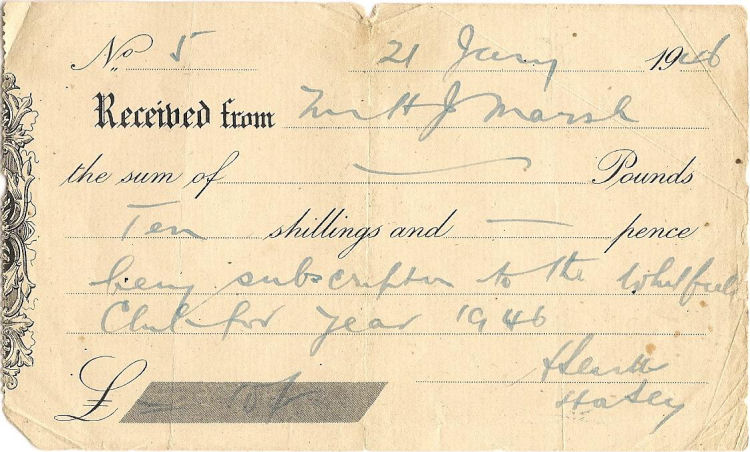 No 5 21 Jany 1946
Received from Mr H J Marsh
the sum of — Pounds
Ten shillings and — pence
being subscription to the
Club for year 1946
£ – 10/-